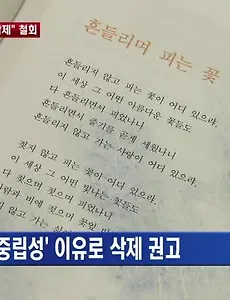 삭제" 철회
흔들리며 피는 꽃
흔들리지 않고 피는 꽃이 어디 있으랴
이 세상 그 어떤 아름다운 꽃들도
다 흔들리면서 피었나니
흔들리면서 줄기를 곧게 세웠나니
흔들리지 않고 가는 사랑이 어디 있으랴
젖지 않고 피는 꽃이 어디 있으랴
이 세상 그 어떤 빛나는 꽃들도
다 젖으며 젖으며 피었나니
바람과 비에 젖으며 꽃잎
젖지 않고 가는 삶이
중립성' 이유로 삭제 권고